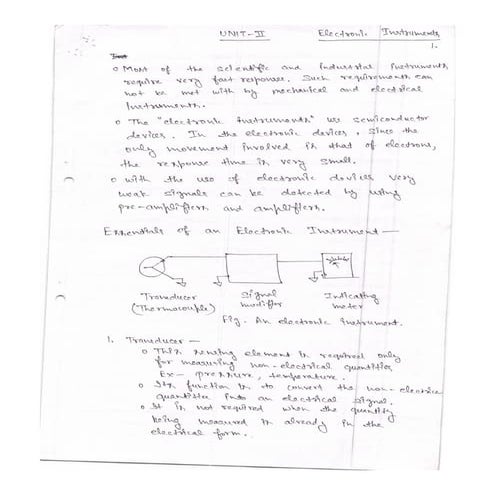 UNIT-II Electronic Instruments
1.
o Most of the scientific and Industrial Instruments
require very fast response. Such requirements can
not be met with by mechanical and electrical
Instruments.
o The "electronic instruments" use semiconductor
devices. In the electronic devices, since the
only movement involved is that of electrons,
the response time is very small.
o with the use of electronic devices very
weak signals can be detected by using
pre-amplifiers and amplifiers.
Essentials of an Electronic Instrument —
Transducer Signal Indicating
(Thermocouple) modifier meter
Fig. An electronic instrument.
1. Transducer —
o This sensing element is required only
for measuring non-electrical quantities
Ex- pressure, temperature.
o Its function is to convert the non-electrical
quantities into an electrical signal.
o It is not required when the quantity
being measured is already in the
electrical form.